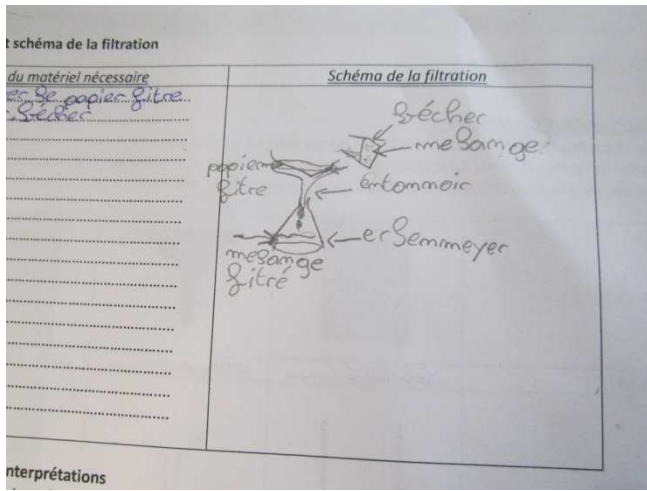 t schéma de la filtration
du matériel nécessaire
Schéma de la filtration
er le papier fitre
bécher
bécher
melange
papier
fitre
entonnoir
erlenmeyer
melange
fitré
nterprétations